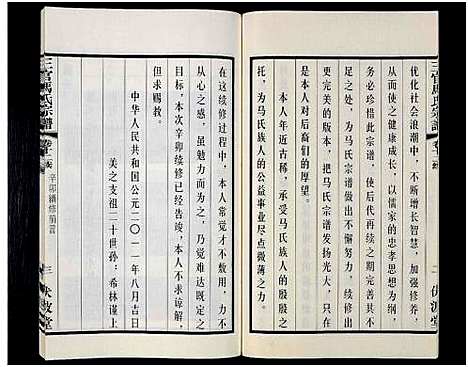 优化社会浪潮中，不断增长智慧，加强修养，
从而使之健康成长，以儒家的忠孝思想为纲，
务必珍惜此宗谱，使后代再续之期完善其不
足之处，为马氏宗谱做出不懈努力。续出比
这更好的版本来，使马氏宗谱发扬光大，只在
此寄托吾辈向后裔们的厚望。
本人年近古稀，承受马氏族人的殷殷之
托，为马氏族人的公益事业尽点微薄之力。
三官馬氏宗譜
伏波堂
在这续修过程中，本人常觉才不敷用，力不
从心之感，虽勇而为之，乃觉难达既定之
目标，本次辛卯续修已经告竣，本人不求谅解，
但求赐教。
中华人民共和国公元二〇一一年八月吉日
美之支祖二十世孙：希林谨上
三官馬氏宗譜
辛卯續修前言
三
伏波堂